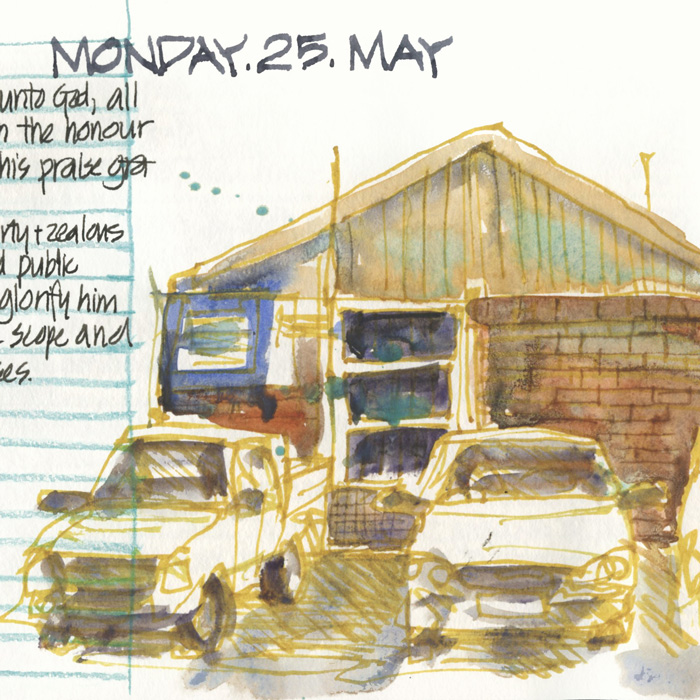 MONDAY.25. MAY
unto God, all
n the honour
his praise
rty + zealous
d public
glorify him
scope and
ses.